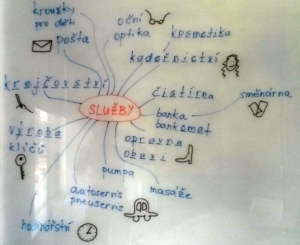 kroužky
pro děti
pošta
oční
optika
kosmetika
kadeřnictví
krejčovství
čistírna
směnárna
SLUŽBY
banka
bankomat
výroba
klíčů
oprava
obuvi
pumpa
masáže
autoservis
pneuservis
hodinářství